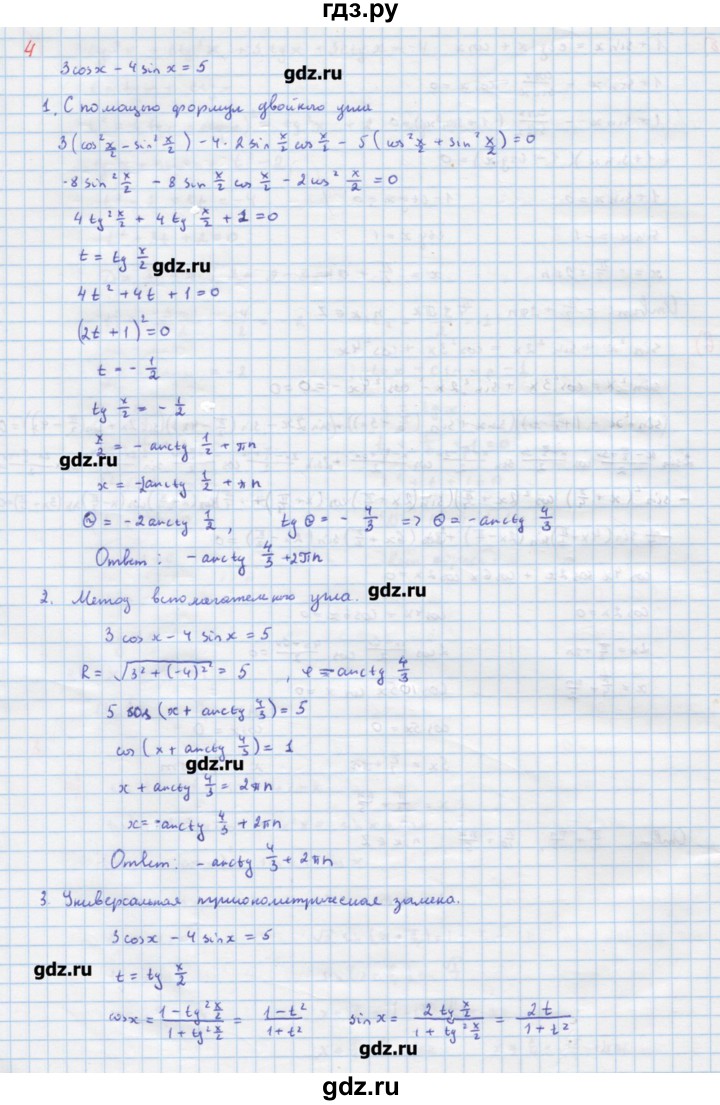 гдз.ру
4
3cosx - 4sin x = 5
gdz.ru
1. С помощью формул двойного угла
3(cos² x/2 - sin² x/2) - 4 · 2 sin x/2 cos x/2 - 5(cos² x/2 + sin² x/2) = 0
-8 sin² x/2 - 8 sin x/2 cos x/2 - 2cos² x/2 = 0
4tg² x/2 + 4tg x/2 + 1 = 0
t = tg x/2
gdz.ru
4t² + 4t + 1 = 0
(2t + 1)² = 0
t = - 1/2
tg x/2 = - 1/2
x/2 = - arctg 1/2 + πn
gdz.ru
x = -2arctg 1/2 + πn
Θ = -2arctg 1/2, tg Θ = - 4/3 => Θ = -arctg 4/3
Ответ: -arctg 4/3 + 2πn
2. Метод вспомагательного угла.
gdz.ru
3 cos x - 4 sin x = 5
R = √3² + (-4)² = 5, φ = -arctg 4/3
5 cos (x + arctg 4/3) = 5
cos (x + arctg 4/3) = 1
gdz.ru
x + arctg 4/3 = 2πn
x = -arctg 4/3 + 2πn
Ответ: - arctg 4/3 + 2πn
3. Универсальная тригонометрическая замена.
3cosx - 4sinx = 5
gdz.ru
t = tg x/2
cosx = (1 - tg² x/2)/(1 + tg² x/2) = (1 - t²)/(1 + t²) sin x = (2 tg x/2)/(1 + tg² x/2) = 2t/(1 + t²)
gdz.ru
gdz.ru